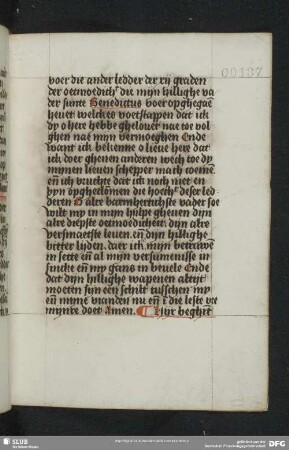 00137
voer die ander ledder der xij graden
der oetmoedich^t die mijn hillighe va
der sunte Benedictus voer opghegaē
heuet welckes voetstappen dat ick
dy o here hebbe ghelouet nae toe vol
ghen nae mijn vermoeghen Ende
want ick bekenne o lieue here dat
ick doer ghenen anderen wech toe dy
mynen lieuen schepper mach comen
eñ ick vruchte dat ick noch niet en
byn opgheclomen die hoech^t deser led
deren O alre barmhertichste vader soe
wilt my in mijn hulpe gheuen dijn
alre diepste oetmoedichēt dijn alre
versmaetste leuen eñ dijn hillighe
bitter lijden daer ick mijn betrouwē
in sette eñ al mijn versumenisse in
sincke eñ my gans in beuele Ende
dat dijn hillighe wapenen altijt
moeten sijn een schilt tusschen my
eñ myne vianden nu eñ ī die leste vr
mynre doet Amen. Hyr beghīt
SLUB
DFG